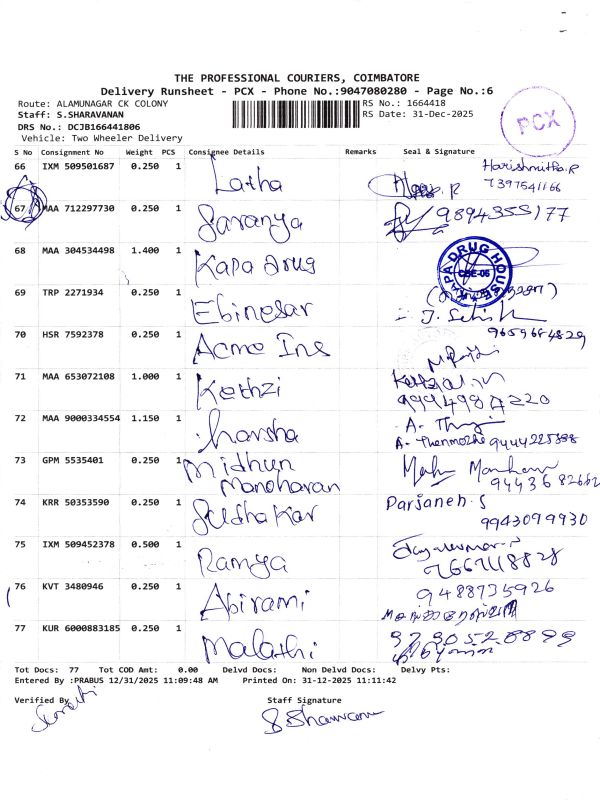 THE PROFESSIONAL COURIERS, COIMBATORE
Delivery Runsheet - PCX - Phone No.:9047080280 - Page No.:6
Route: ALAMUNAGAR CK COLONY
RS No.: 1664418
Staff: S.SHARAVANAN
RS Date: 31-Dec-2025
DRS No.: DCJB166441806
Vehicle: Two Wheeler Delivery
PCX
S No Consignment No Weight PCS Consignee Details Remarks Seal & Signature
66 IXM 509501687 0.250 1 Latha
7397541166
67 MAA 712297730 0.250 1 Saranya 9894355177
68 MAA 304534498 1.400 1 Kapa Drug
KAPA DRUG HOUSE
CBE-06
69 TRP 2271934 0.250 1 Ebinesar
J. Sathish
9659684829
70 HSR 7592378 0.250 1 Acme Ins
71 MAA 653072108 1.000 1 Kethzi
72 MAA 9000334554 1.150 1 harsha
A. Thenmozhe 9444225398
73 GPM 5535401 0.250 1 Midhun Manoharan
74 KRR 50353590 0.250 1 Sudhakar
9943099930
75 IXM 509452378 0.500 1 Ramya
76 KVT 3480946 0.250 1 Abirami 9488735926
77 KUR 6000883185 0.250 1 Malathi
Tot Docs: 77 Tot COD Amt: 0.00 Delvd Docs: Non Delvd Docs: Delvy Pts:
Entered By :PRABUS 12/31/2025 11:09:48 AM Printed On: 31-12-2025 11:11:42
Verified By Staff Signature